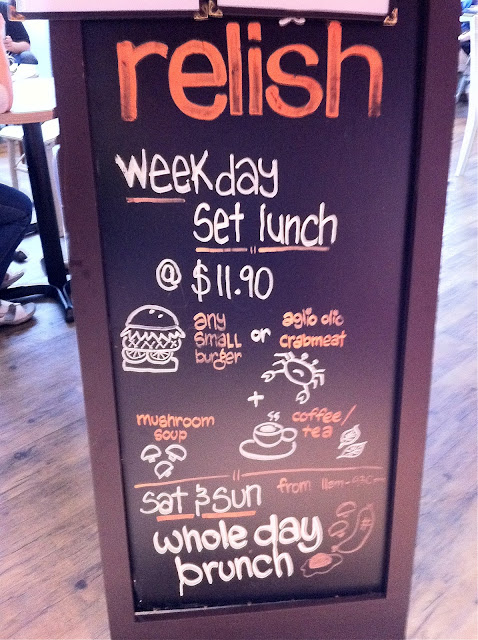 relish
weekday
Set lunch
@ $11.90
any small burger or aglio olio crabmeat
+
mushroom soup
coffee/ tea
Sat & Sun from 11am-
whole day
brunch